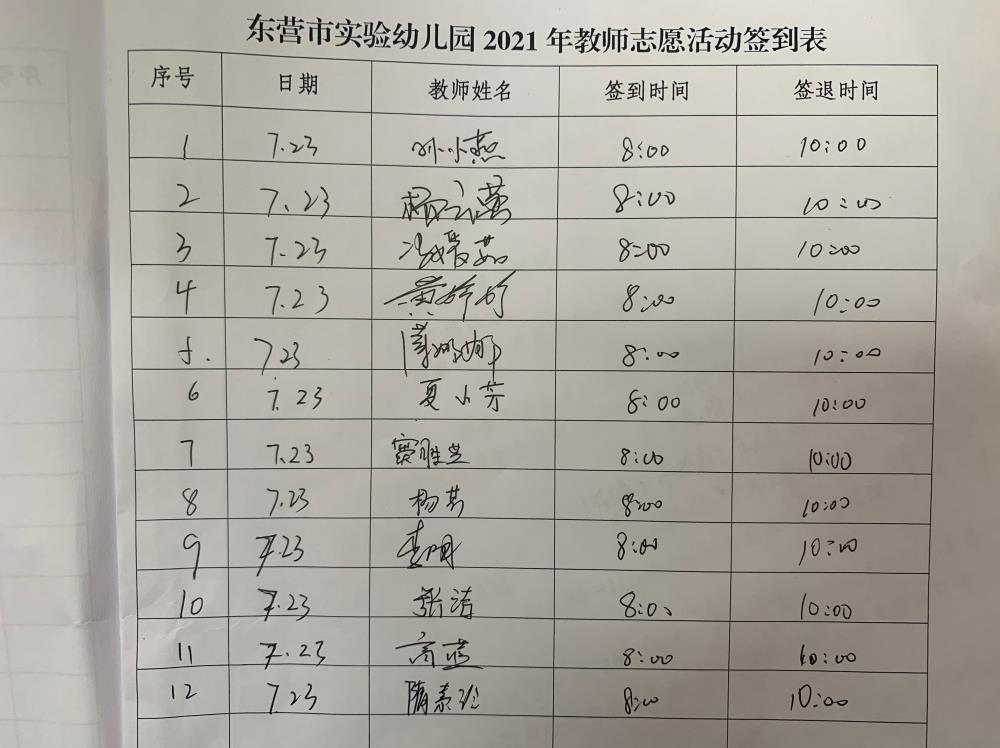 东营市实验幼儿园 2021 年教师志愿活动签到表
序号 日期 教师姓名 签到时间 签退时间
1 7.23 孙小燕 8:00 10:00
2 7.23 8:00 10:00
3 7.23 冯爱茹 8:00 10:00
4 7.23 黄 8:00 10:00
5. 7.23 8:00 10:00
6 7.23 夏小芳 8:00 10:00
7 7.23 窦胜兰 8:00 10:00
8 7.23 杨 8:00 10:00
9 7.23 8:00 10:00
10 7.23 张洁 8:00 10:00
11 7.23 高 8:00 10:00
12 7.23 隋 8:00 10:00